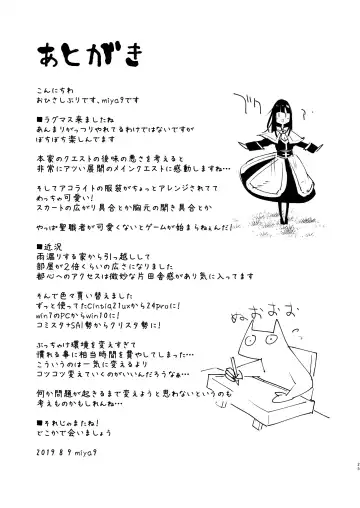 あとがき
こんにちわ
おひさしぶりです、miya9です
■ラグマス来ましたね
あんまりがっつりやれてるわけではないですが
ぼちぼち楽しんでます
本家のクエストの後味の悪さを考えると
非常にアツい展開のメインクエストに感動しますね…
そしてアコライトの服装がちょっとアレンジされてて
めっちゃ可愛い!
スカートの広がり具合とか胸元の開き具合とか
やっぱ聖職者が可愛くないとゲームが始まらねぇんだ!
■近況
雨漏りする家から引っ越しして
部屋が2倍くらいの広さになりました
都心へのアクセスは微妙な片田舎感があり気に入ってます
そんで色々買い替えました
ずっと使ってたCintiq21uxから24proに!
win7のPCからwin10に!
コミスタ+SAI勢からクリスタ勢に!
ぶっちゃけ環境を変えすぎて
慣れる事に相当時間を費やしてしまった…
こういうのは一気に変えるより
コツコツ変えていくのがいいんだろうなぁ…
何か問題が起きるまで変えようと思わないというのも
考えものかもしれんね…
■それじゃまたね!
どこかで会いましょう
2019 8 9 miya9
ブワッ
ぬぉおおお